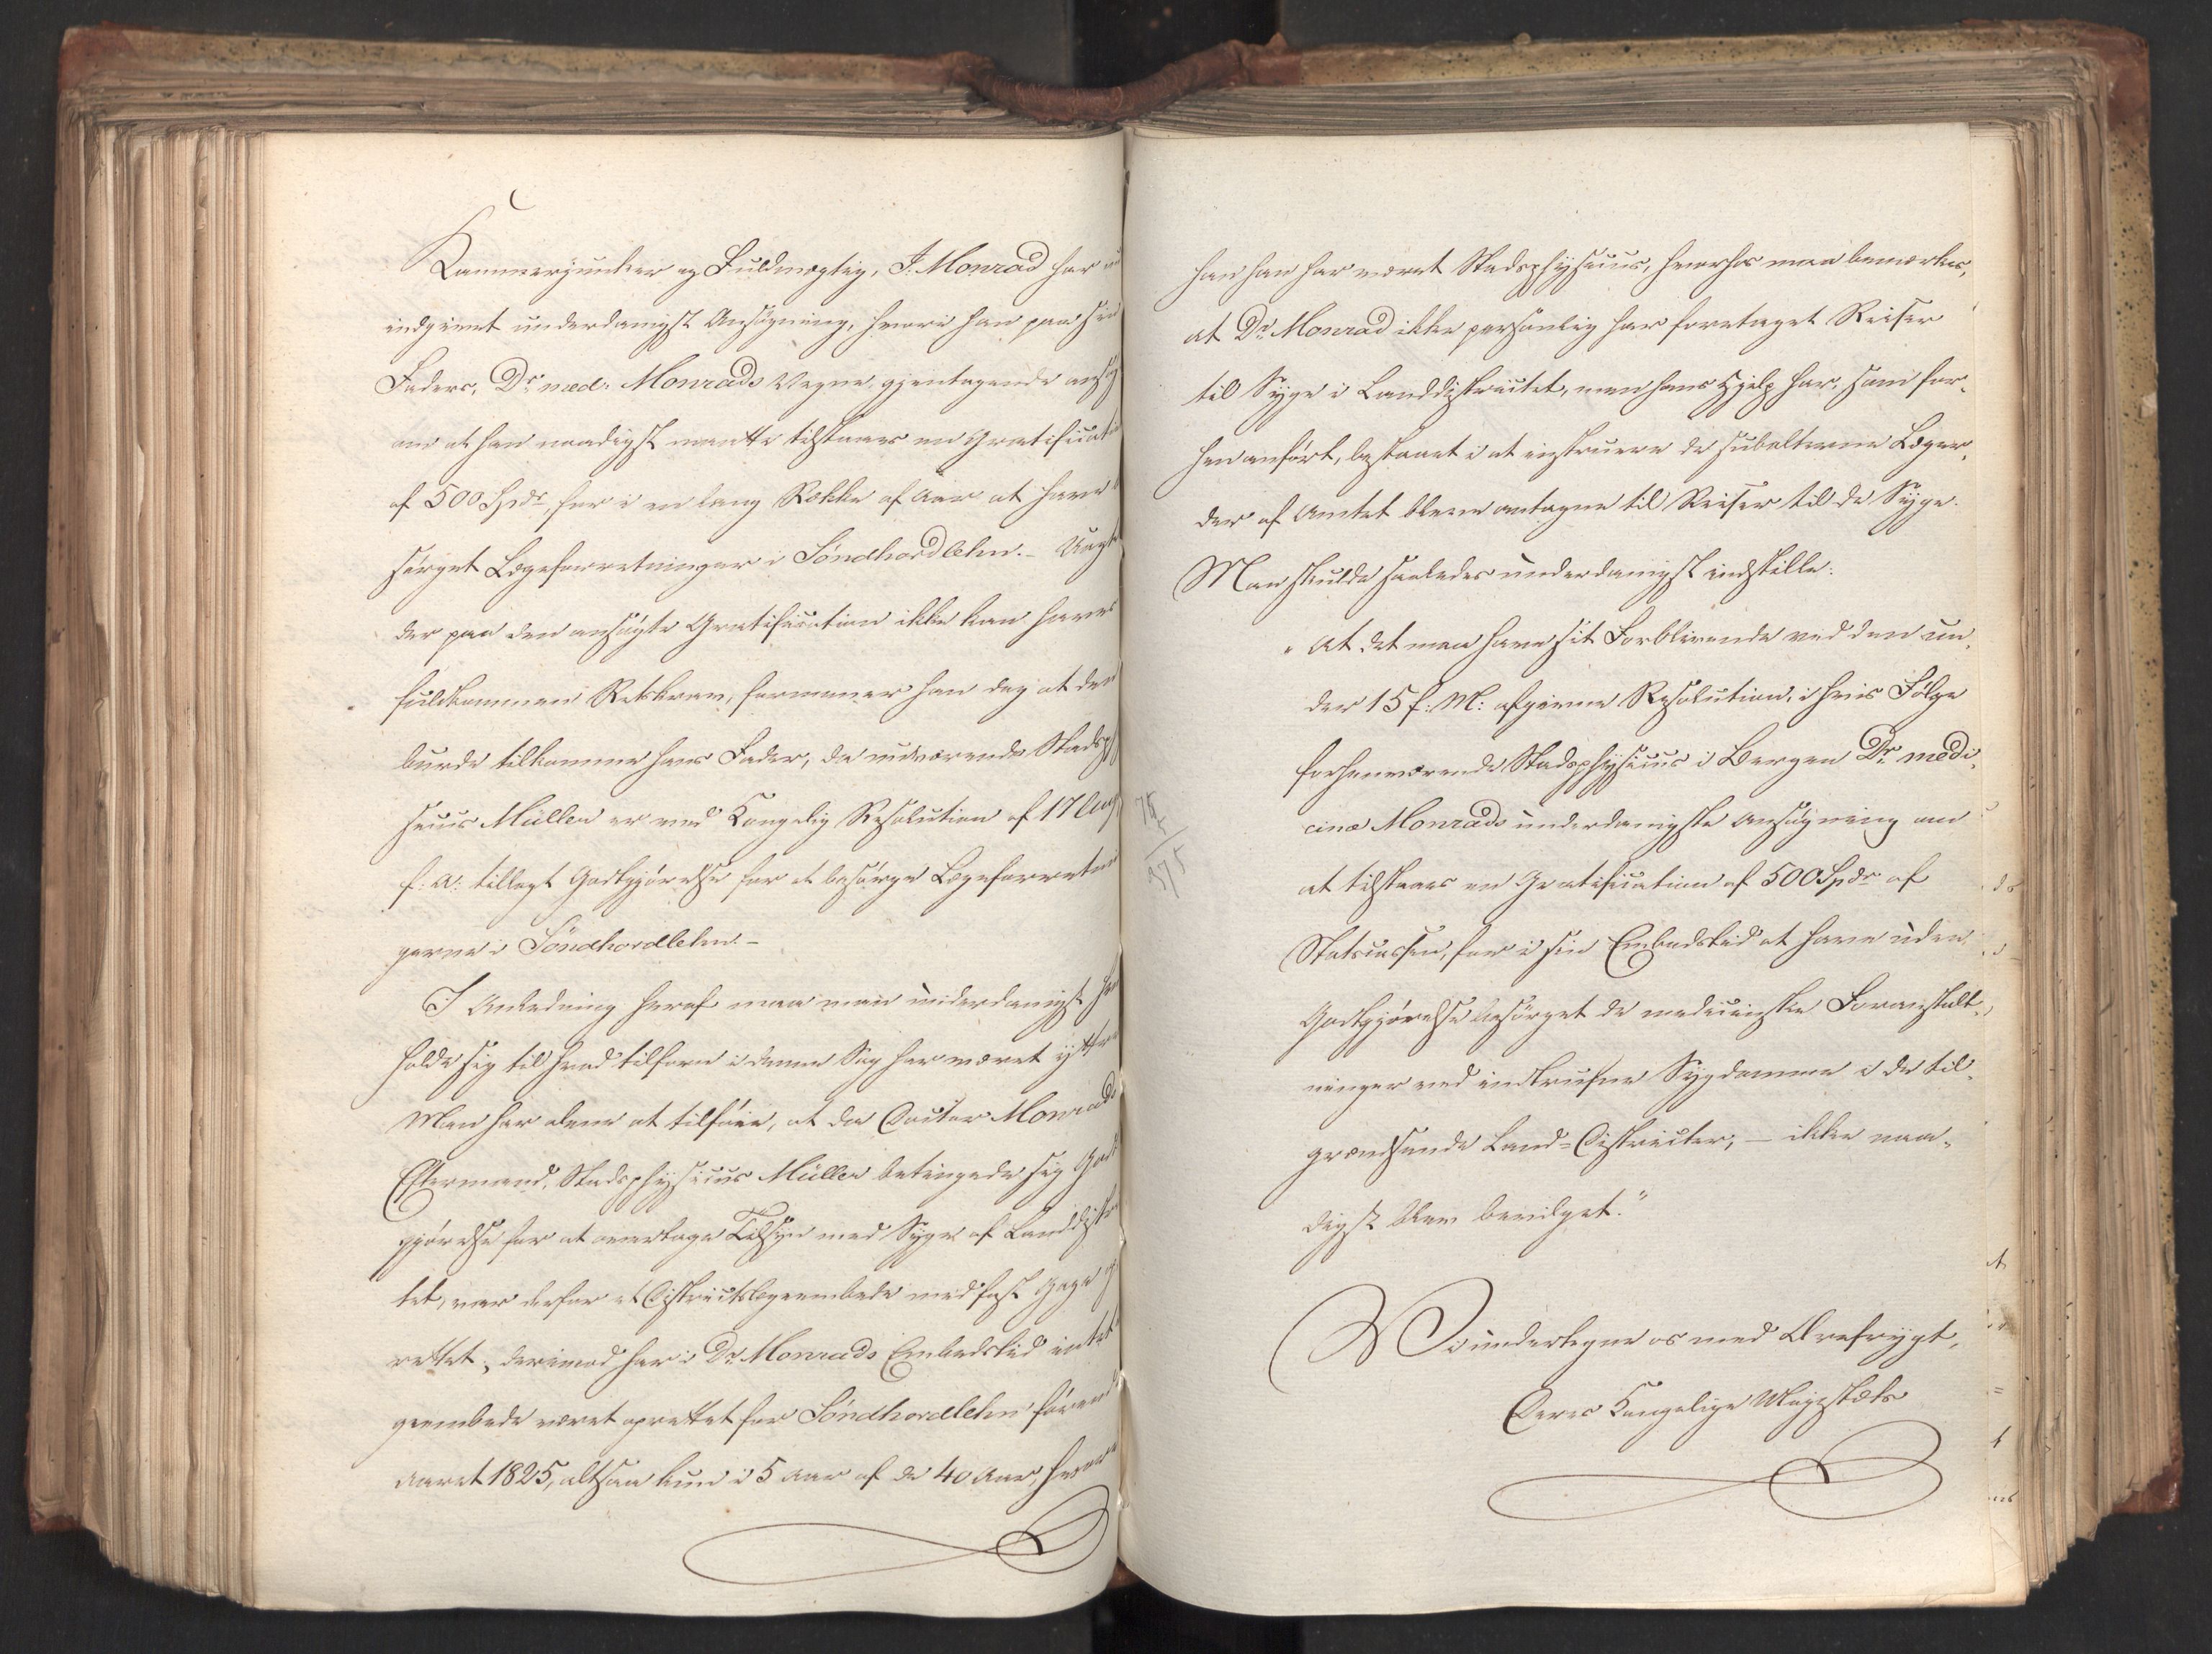 Kammerjunker og Fuldmægtig, J. Monrad har
indgivet underdanigst Ansøgning, hvori han paa sin
Faders, Dr. med: Monrads Vegne, gjentagende ansøg
om at han naadigst maatte tilstaaes en Gratificati
af 500 Spdr, for i en lang Række af Aar at have
sørget Lægeforretninger i Söndhordlehn. – Uagt
der paa den ansøgte Gratification ikke kan haves
fuldkommen Retskrav, formener han dog at den
burde tilkomme hans Fader, da nuværende Stadsph
sicus Müller er ved Kongelig Resolution af 17 Aug
f: A: tillagt Godtgjørelse for at besørge Lægeforretni
gerne i Söndhordlehn. –
I Anledning heraf maa man underdanigst hen
holde sig til hvad tilforn i denne Sag har været yttre
Man har alene at tilføie, at da Doctor Monrads
Eftermand, Stadsphysicus Müller betingede sig Godt
gjørelse for at overtage Tilsyn med Syge af Landdistr
tet, var derfor et Districtslægeembede med fast Gage
rettet, derimod har i Dr. Monrads Embedstid intet
geembede været oprettet for Söndhordlehn føren
Aaret 1825, altsaa kun i 5 Aar af de 40 Aar,
han har været Stadsphysicus, hvorhos maa bemærkes,
at Dr. Monrad ikke personlig har foretaget Reiser
til Syge i Landdistrictet, men hans Hjelp har, som for-
hen anført, bestaaet i at instruere de subalterne Læger,
der af Amtet bleve antagne til Reiser til de Syge.
Man skulde saaledes underdanigst indstille:
"At det maa have sit Forblivende ved den un-
der 15 f: M: afgivne Resolution, i hvis Følge
forhenværende Stadsphysicus i Bergen Dr. medi-
cinæ Monrads underdanigste Ansøgning om
at tilstaaes en Gratification af 500 Spdr af
Statscassen, for i sin Embedstid at have uden
Godtgjørelse besørget de medicinske Foranstalt-
ninger ved indtrufne Sygdomme i de til-
grændsende Land-Districter, – ikke naa-
digst blev bevilget."
Vi undertegne os med Ærefrygt,
Deres Kongelige Majestæts